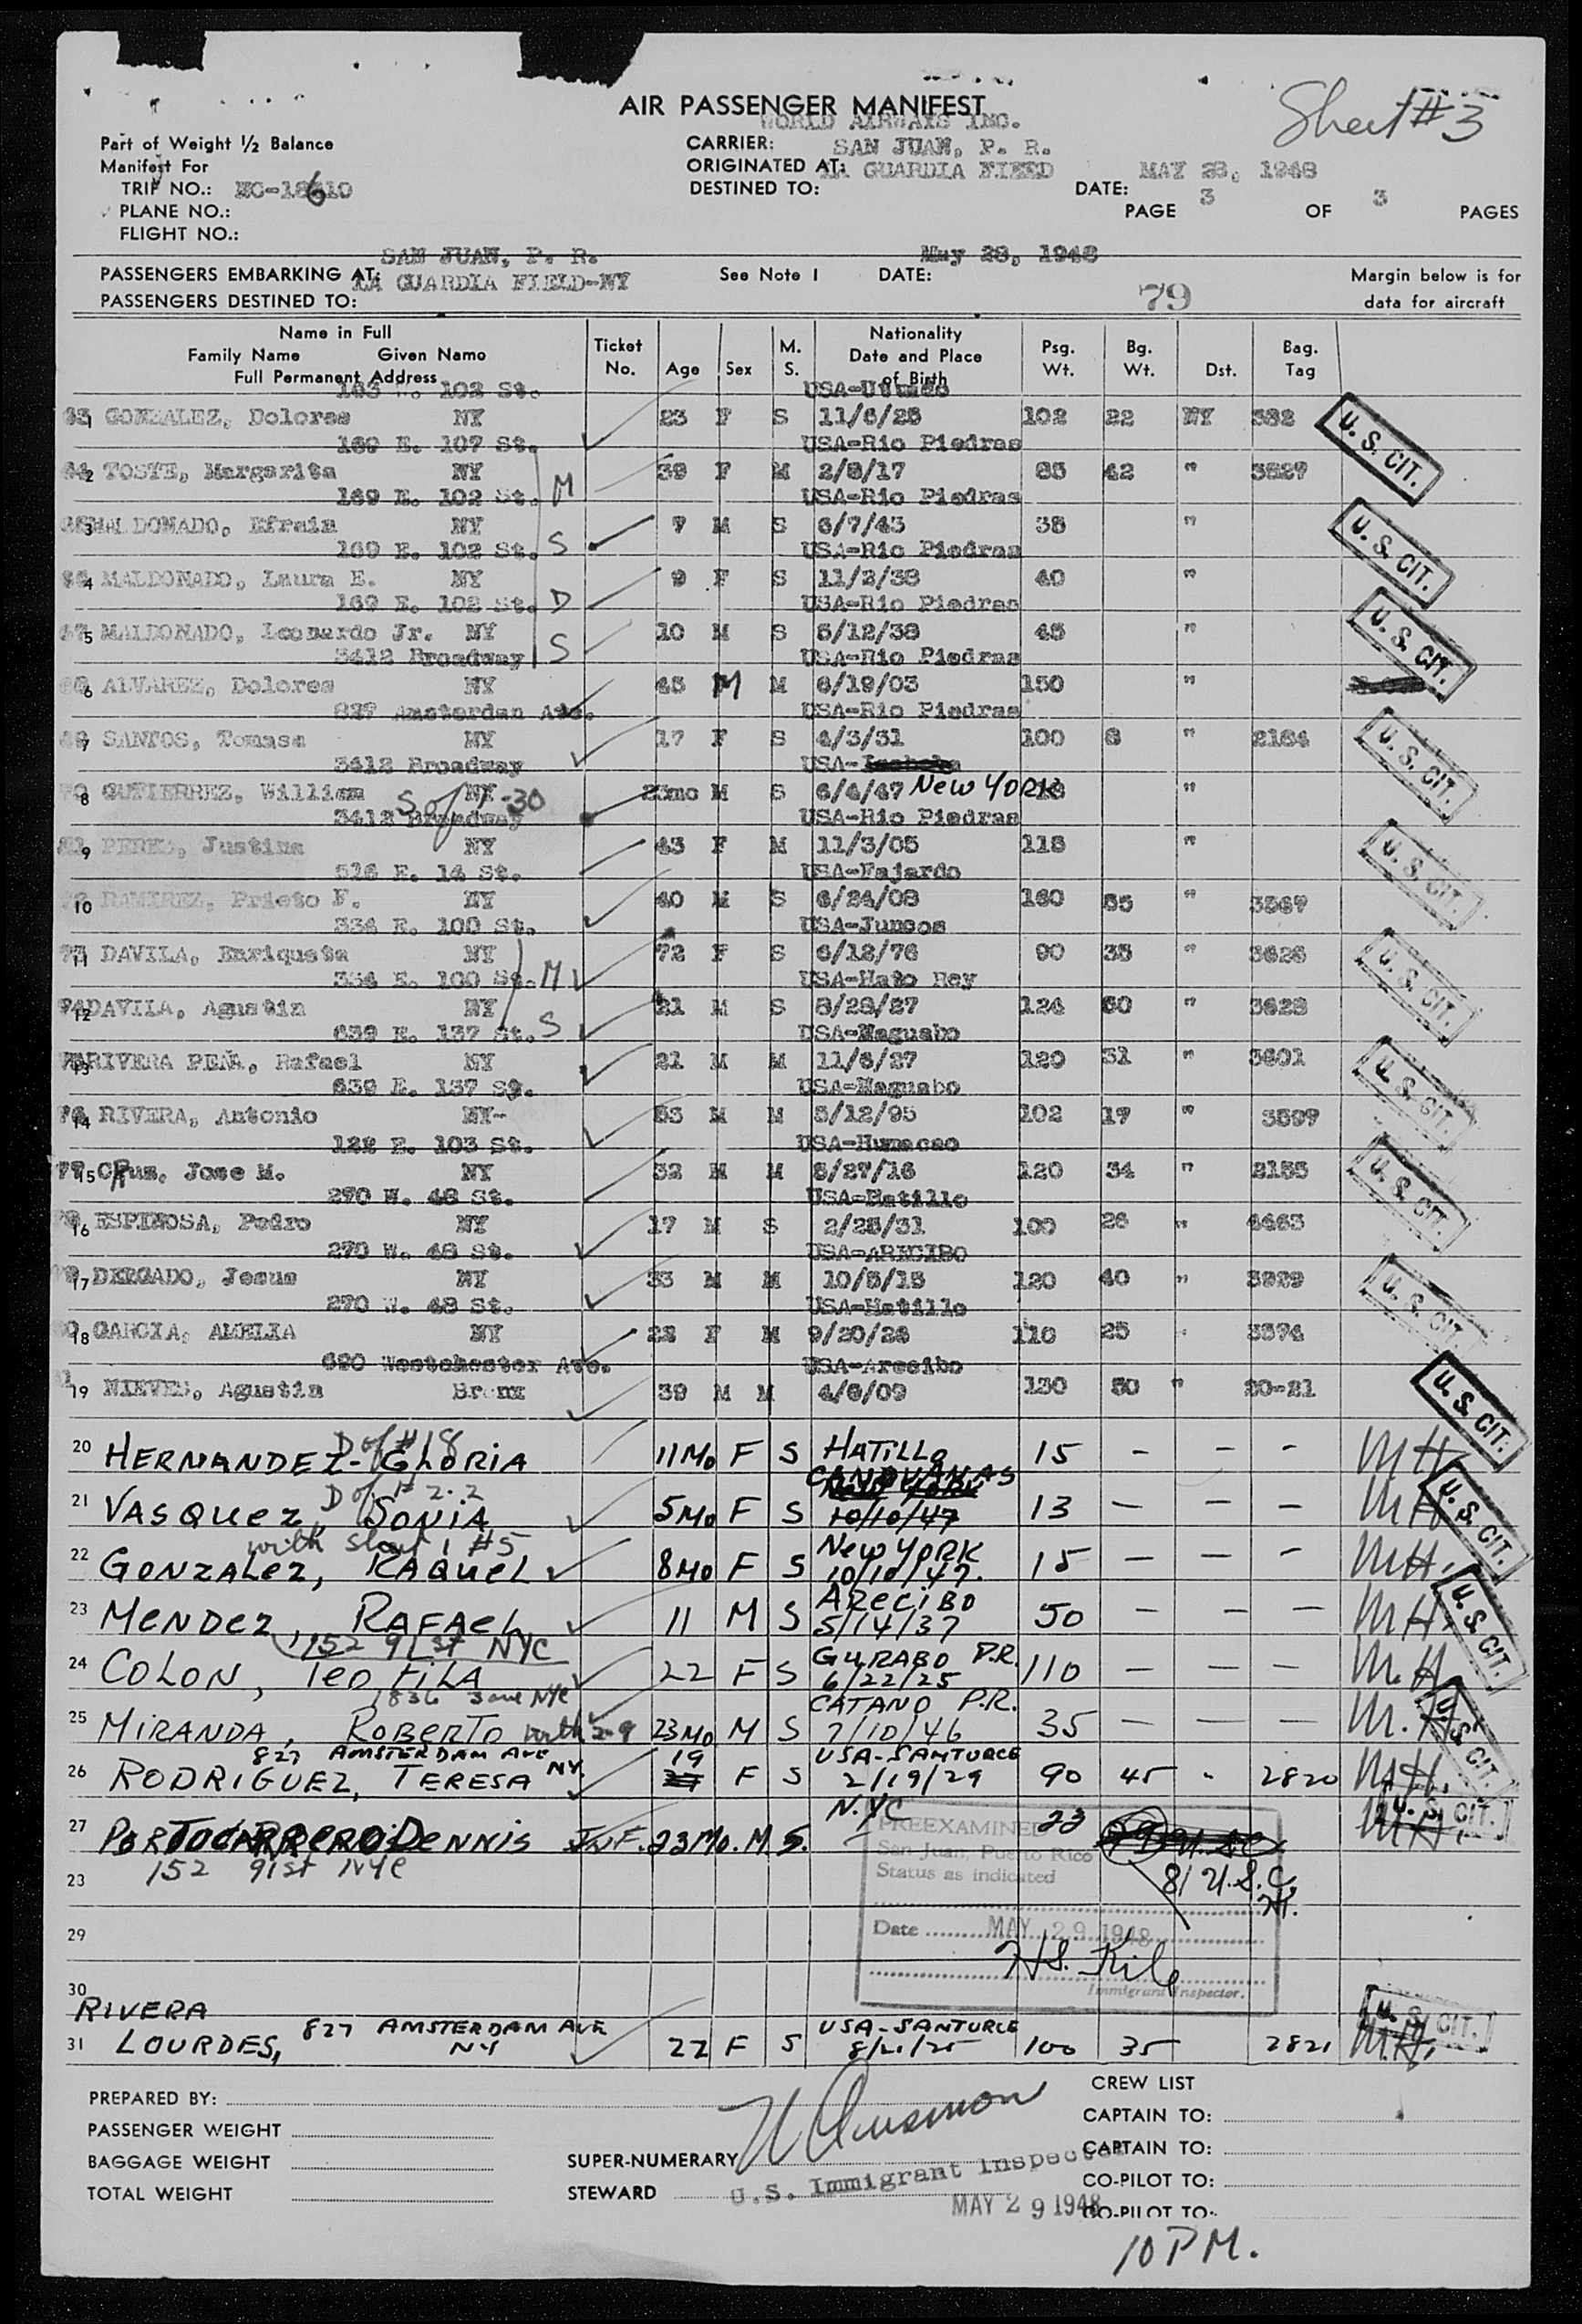 Sheet #3
AIR PASSENGER MANIFEST
WORLD AIRWAYS INC.
Part of Weight 1/2 Balance
CARRIER: SAN JUAN, P. R.
Manifest For
ORIGINATED AT: LA GUARDIA FIELD MAY 28, 1948
TRIP NO.: NC-18610
DESTINED TO: DATE:
PLANE NO.:
PAGE 3 OF 3 PAGES
FLIGHT NO.:
SAN JUAN, P. R. May 28, 1948
PASSENGERS EMBARKING AT: LA GUARDIA FIELD-NY See Note 1 DATE: Margin below is for
PASSENGERS DESTINED TO: 79 data for aircraft
Name in Full Family Name Given Name Full Permanent Address Ticket No. Age Sex M. S. Nationality Date and Place of Birth Psg. Wt. Bg. Wt. Dst. Bag. Tag
102 St. USA-Utuado
1 GONZALEZ, Dolores NY 23 F S 11/6/25 102 22 NY 382 U. S. CIT.
169 E. 107 St. USA-Rio Piedras
2 TOSTE, Margarita NY M 39 F M 2/8/17 85 42 " 3627
169 E. 102 St. USA-Rio Piedras
3 MALDONADO, Efrain NY 7 M S 6/7/43 38 " U. S. CIT.
169 E. 102 St. S USA-Rio Piedras
4 MALDONADO, Laura E. NY 9 F S 11/2/38 40 "
169 E. 102 St. D USA-Rio Piedras
5 MALDONADO, Leonardo Jr. NY S 10 M S 5/12/38 45 " U. S. CIT.
3412 Broadway USA-Rio Piedras
6 ALVAREZ, Dolores NY 45 M M 6/19/03 150 "
827 Amsterdan Ave. USA-Rio Piedras
7 SANTOS, Tomasa NY 17 F S 4/3/31 100 8 " 2184 U. S. CIT.
3412 Broadway USA-
8 GUTIERREZ, William NY 23mo M S 6/4/47 New YORK "
3412 Broadway USA-Rio Piedras
9 PEREZ, Justina NY 43 F M 11/3/05 118 " U. S. CIT.
516 E. 14 St. USA-Fajardo
10 RAMIREZ, Prieto F. NY 40 M S 6/24/08 160 55 " 3567
334 E. 100 St. USA-Juncos
11 DAVILA, Enriqueta NY 72 F S 6/12/76 90 35 " 3626 U. S. CIT.
334 E. 100 St. M USA-Hato Rey
12 DAVILA, Agustin NY 21 M S 8/28/27 124 50 " 3628
639 E. 137 St. S USA-Naguabo
13 RIVERA PEÑA, Rafael NY 21 M M 11/6/27 120 31 " 3601 U. S. CIT.
639 E. 137 St. USA-Naguabo
14 RIVERA, Antonio NY- 53 M M 5/12/95 102 17 " 3597
122 E. 103 St. USA-Humacao
15 CRuz, Jose M. NY 32 M M 8/27/16 120 34 " 2155 U. S. CIT.
270 W. 48 St. USA-Hatillo
16 ESPINOSA, Pedro NY 17 M S 2/25/31 100 26 " 4463
270 W. 48 St. USA-ARECIBO
17 DERGADO, Jesus NY 33 M M 10/5/15 120 40 " 3929 U. S. CIT.
270 W. 48 St. USA-Hatillo
18 GARCIA, AMELIA NY 22 F M 9/20/26 116 25 3574
690 Westchester Ave. USA-Arecibo
19 NIEVES, Agustin Bronx 39 M M 4/6/09 130 50 " 20-21 U. S. CIT.
D of #18
20 HERNANDEZ- GLORIA 11Mo F S HATILLO 15 - - - MH
D of # 2-2 CANOVANAS
21 VASQUEZ, SONIA 5Mo F S 10/10/47 13 - - - MH U. S. CIT.
with sheet 1 #5
22 GONZALEZ, RAQUEL 8Mo F S New YORK 10/10/47. 15 - - - MH.
23 MENDEZ, RAFAEL 11 M S ARECIBO 5/14/37 50 - - - MH. U. S. CIT.
152 91st NYC
24 COLON, TEOFILA 22 F S GURABO P.R. 6/22/25 110 - - - M.H
CATANO P.R.
25 MIRANDA, ROBERTO with 2-9 23Mo M S 7/10/46 35 - - - M.H. U. S. CIT.
827 AMSTERDAM AVE NY. 19 USA-SANTURCE
26 RODRIGUEZ, TERESA F S 2/19/29 90 45 2820 M.H.
N.YC
27 PORTOCARRERO DENNIS INF. 23Mo. M S. 23 MH. U. S. CIT.
152 91st NYC
PREEXAMINED
San Juan, Puerto Rico
Status as indicated
81 U.S.C.
23
29
Date MAY 29 1948
H.S. Kile
Immigrant Inspector.
30
RIVERA
827 AMSTERDAM AVE USA-SANTURCE U. S. CIT.
31 LOURDES, NY 22 F S 100 35 2821 M.H.
PREPARED BY: CREW LIST
CAPTAIN TO:
PASSENGER WEIGHT
BAGGAGE WEIGHT SUPER-NUMERARY CAPTAIN TO:
U.S. Immigrant Inspector
CO-PILOT TO:
TOTAL WEIGHT STEWARD
MAY 29 1948 CO-PILOT TO:
10 PM.